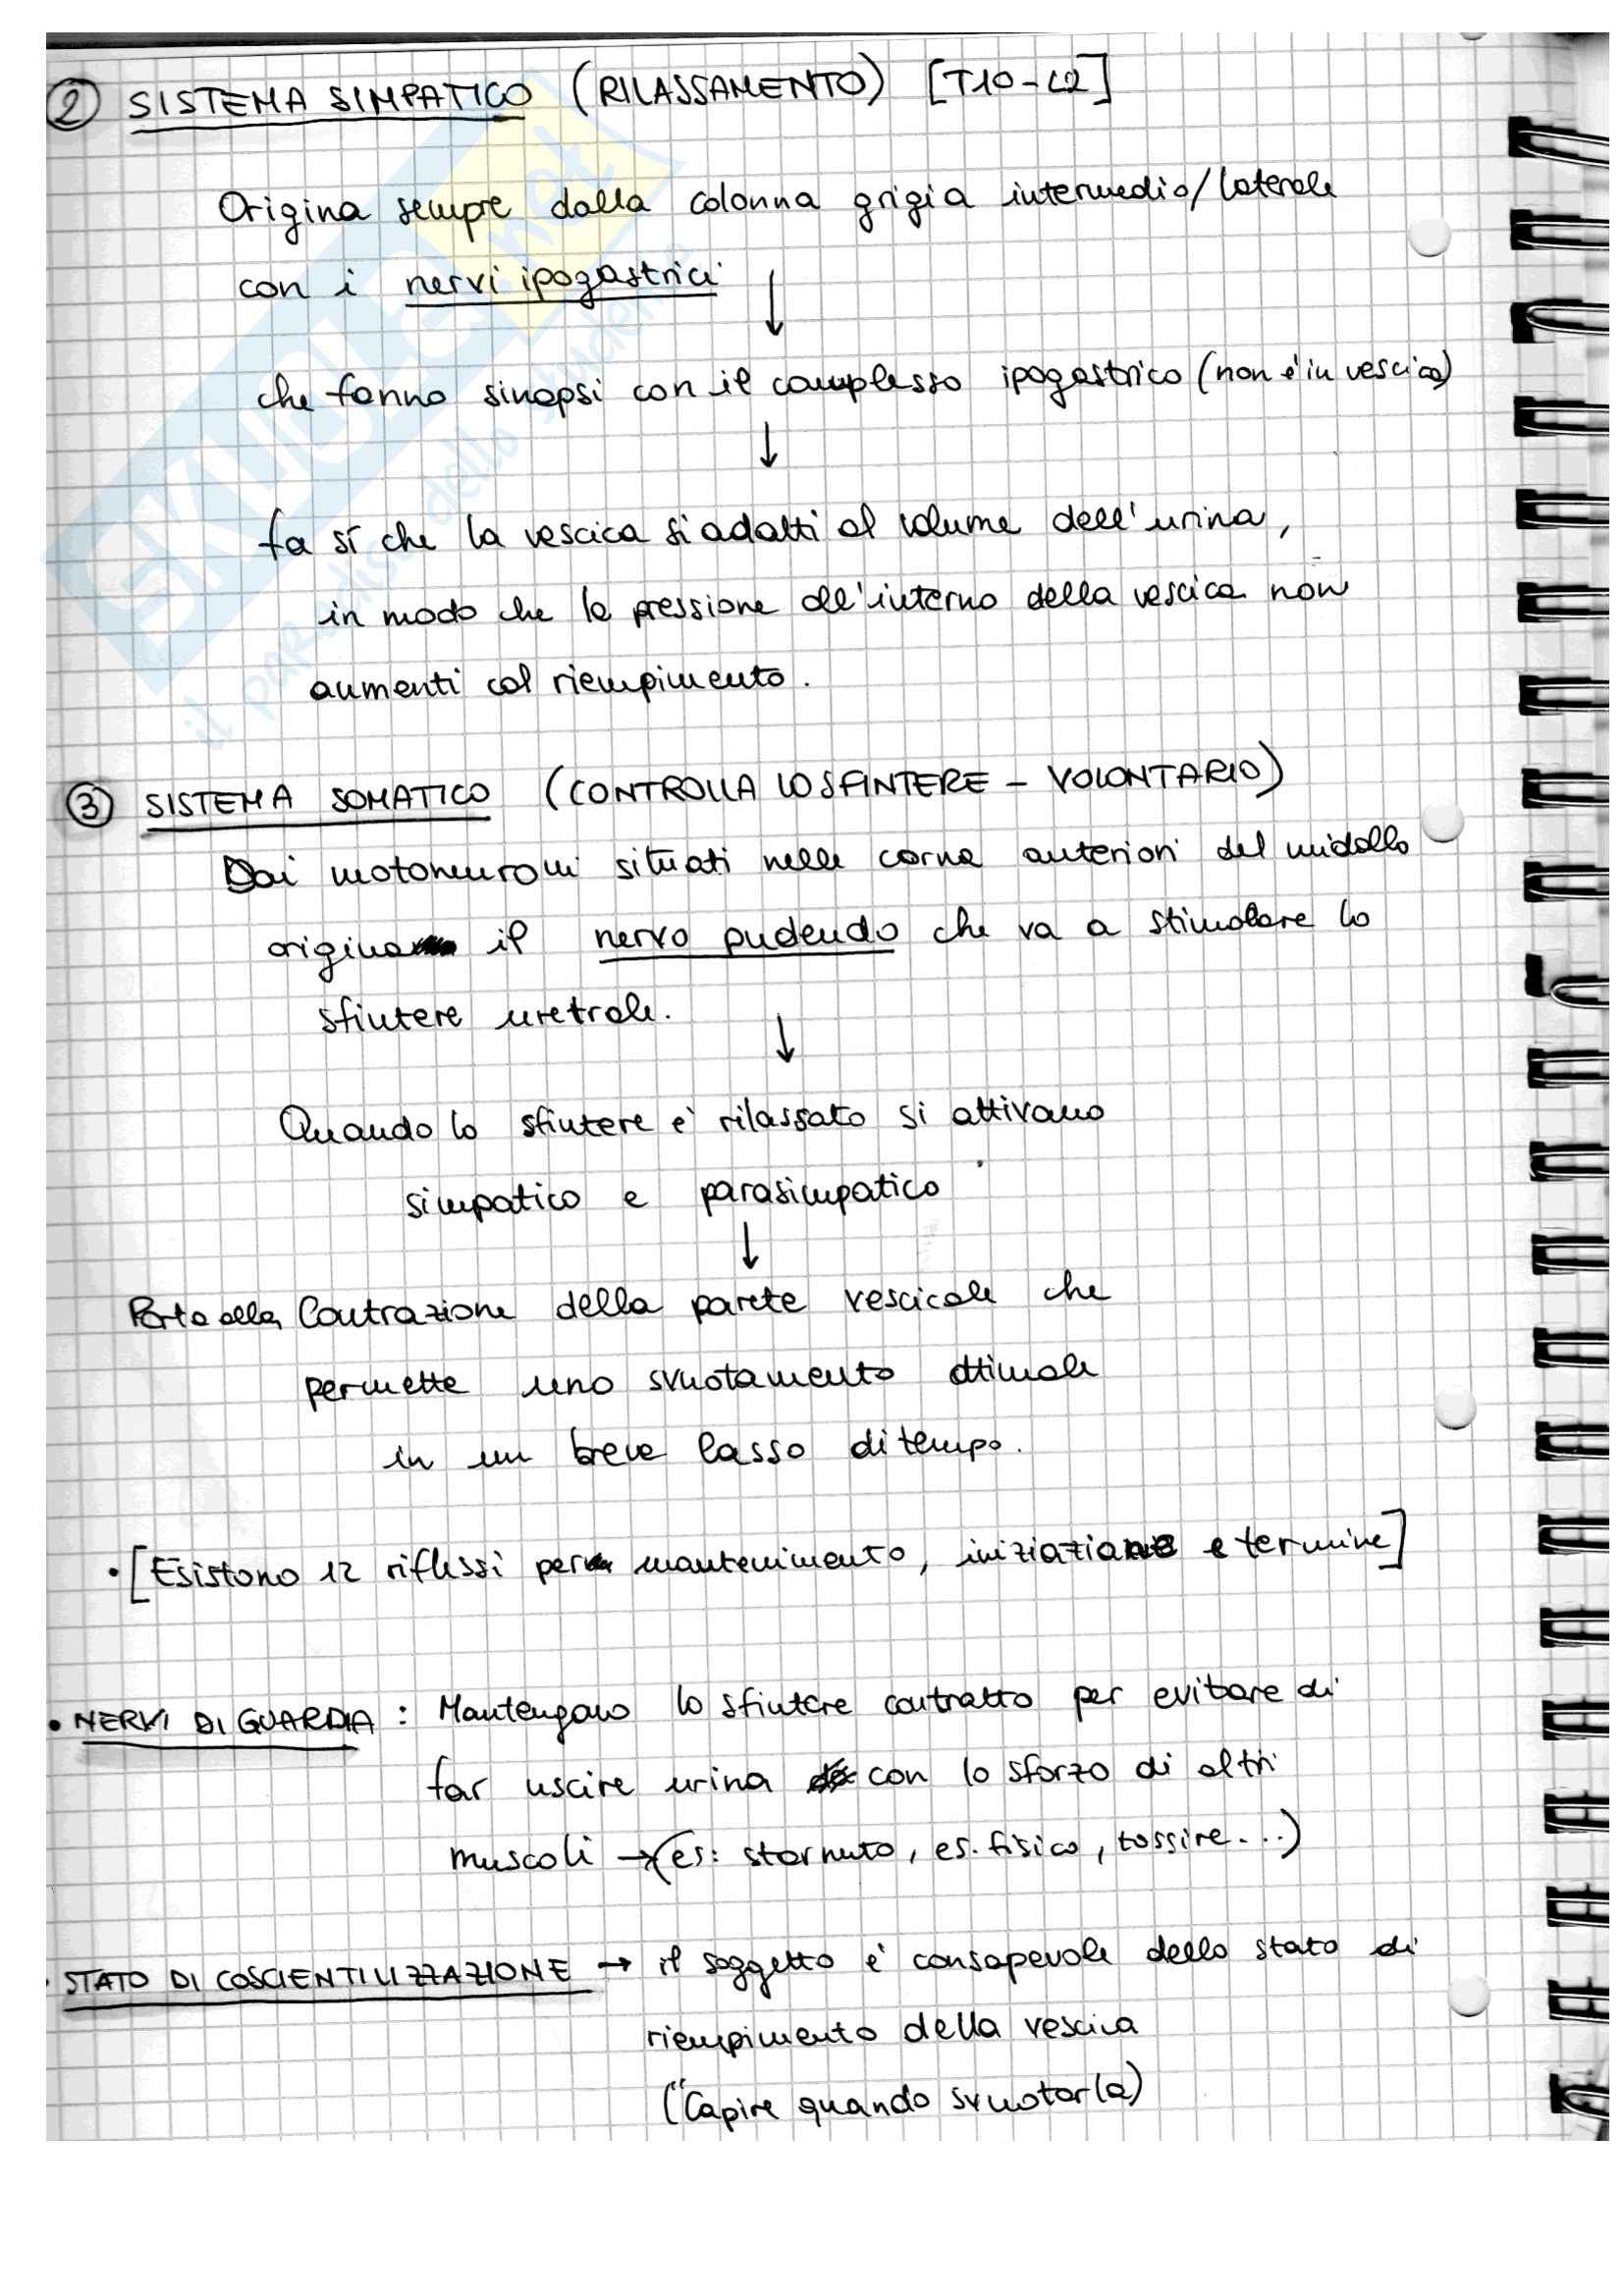 ② SISTEMA SIMPATICO (RILASSAMENTO) [T10-L2]
Origina sempre dalla colonna grigia intermedio/laterale
con i nervi ipogastrici
↓
che fanno sinapsi con il complesso ipogastrico (non è in vescica)
↓
fa sí che la vescica si adatti al volume dell'urina,
in modo che la pressione all'interno della vescica non
aumenti col riempimento.
③ SISTEMA SOMATICO (CONTROLLA LO SFINTERE - VOLONTARIO)
Dai motoneuroni situati nelle corna anteriori del midollo
origina il nervo pudendo che va a stimolare lo
sfintere uretrale.
↓
Quando lo sfintere è rilassato si attivano
simpatico e parasimpatico
↓
Porta alla Contrazione della parete vescicale che
permette uno svuotamento ottimale
in un breve lasso di tempo.
• [Esistono 12 riflessi per mantenimento, iniziazione e termine]
• NERVI DI GUARDIA : Mantengono lo sfintere contratto per evitare di
far uscire urina con lo sforzo di altri
muscoli → (es: starnuto, es. fisico, tossire...)
• STATO DI COSCIENTILIZZAZIONE → il soggetto è consapevole dello stato di
riempimento della vescica
("Capire quando svuotarla)
SKUOLA.net
il paradiso dello studente